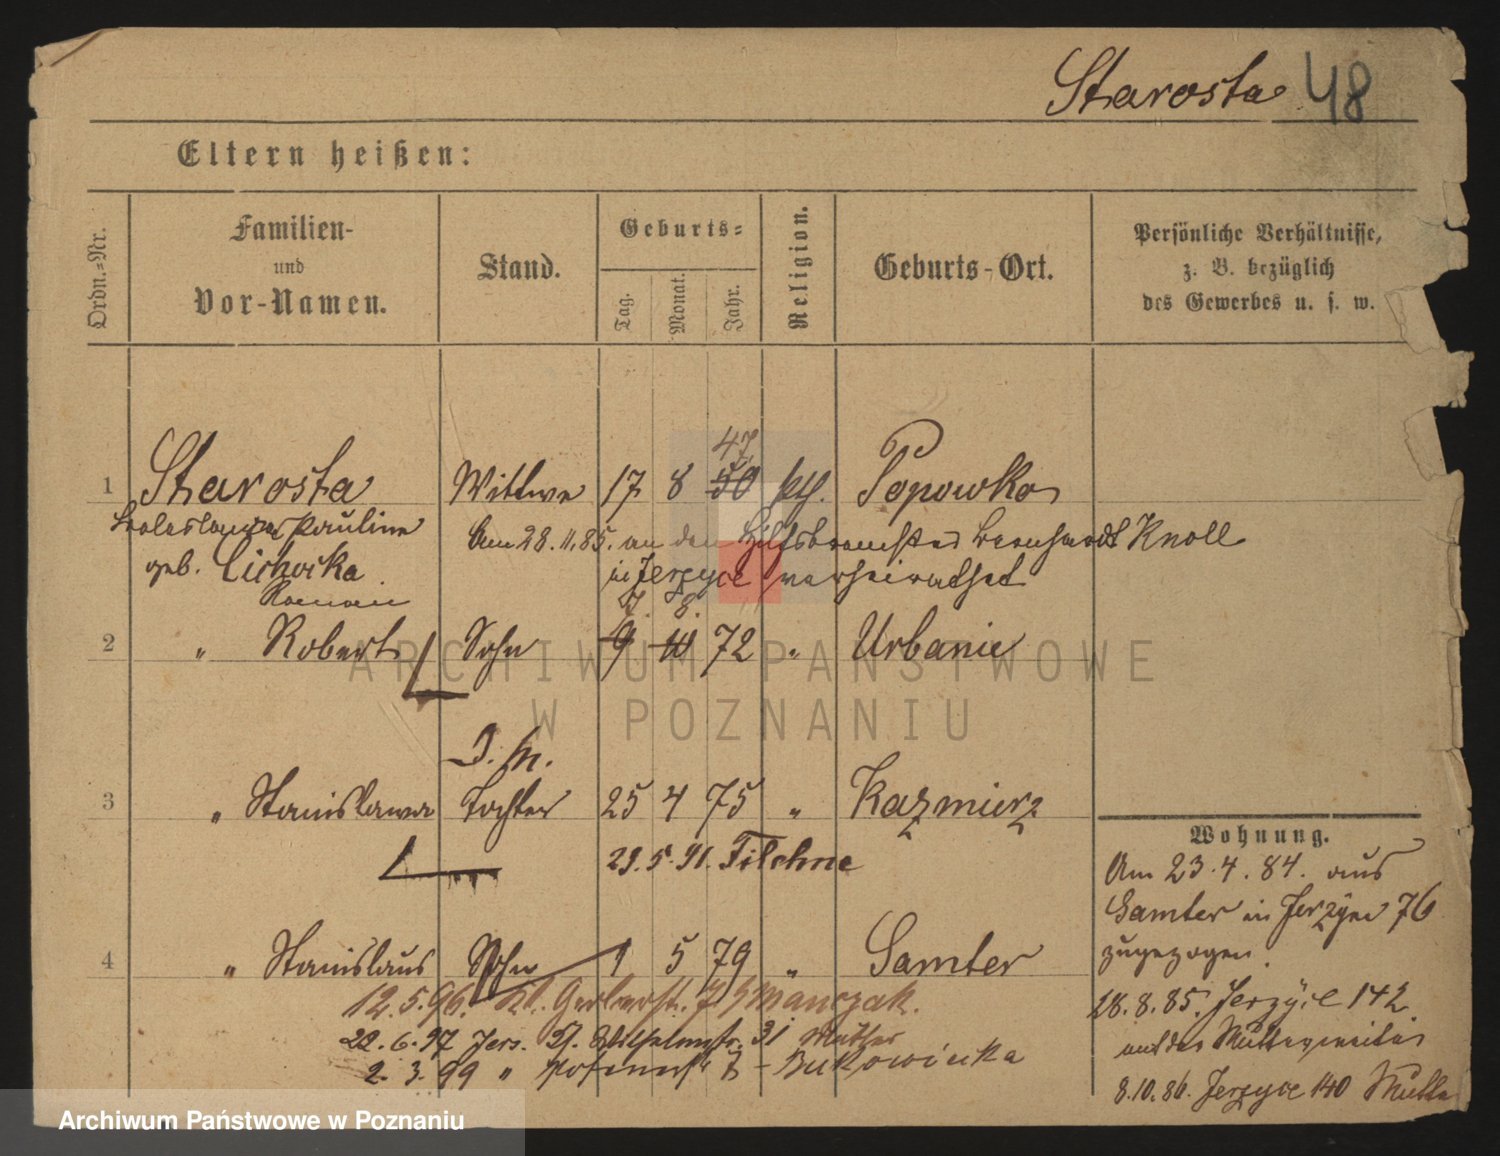 Starosta 48
Eltern heißen:
Ordn.-Nr.
Familien-
und
Vor-Namen.
Stand.
Geburts-
Tag.
Monat.
Jahr.
Religion.
Geburts-Ort.
Persönliche Verhältnisse,
z. B. bezüglich
des Gewerbes u. s. w.
47
1 Starosta Wittwe 17 8 50 kth. Popowko
Pauline Am 28.11.85. an den Hilfsbremser Bernhardt Knoll
geb. Cichocka in Jerzyce verheirathet
Roman 7. 8.
2 " Robert Sohn 9 10 72 " Urbanie
ARCHIWUM PAŃSTWOWE
W POZNANIU
3 " Stanislawa Tochter 25 4 75 " Kazmierz
29.5.91. Filehne
Wohnung.
Am 23.4.84. aus
Samter in Jerzyce 76
zugezogen.
4 " Stanislaus Sohn 1 5 79 " Samter
12.5.96. Kl. Gerberstr. 7
28.8.85. Jerzyce 142
22.6.97 Jers. Wilhelmstr. 31 Mutter
2.3.99 " 7 - Bukowiecka
8.10.86. Jerzyce 140
Archiwum Państwowe w Poznaniu